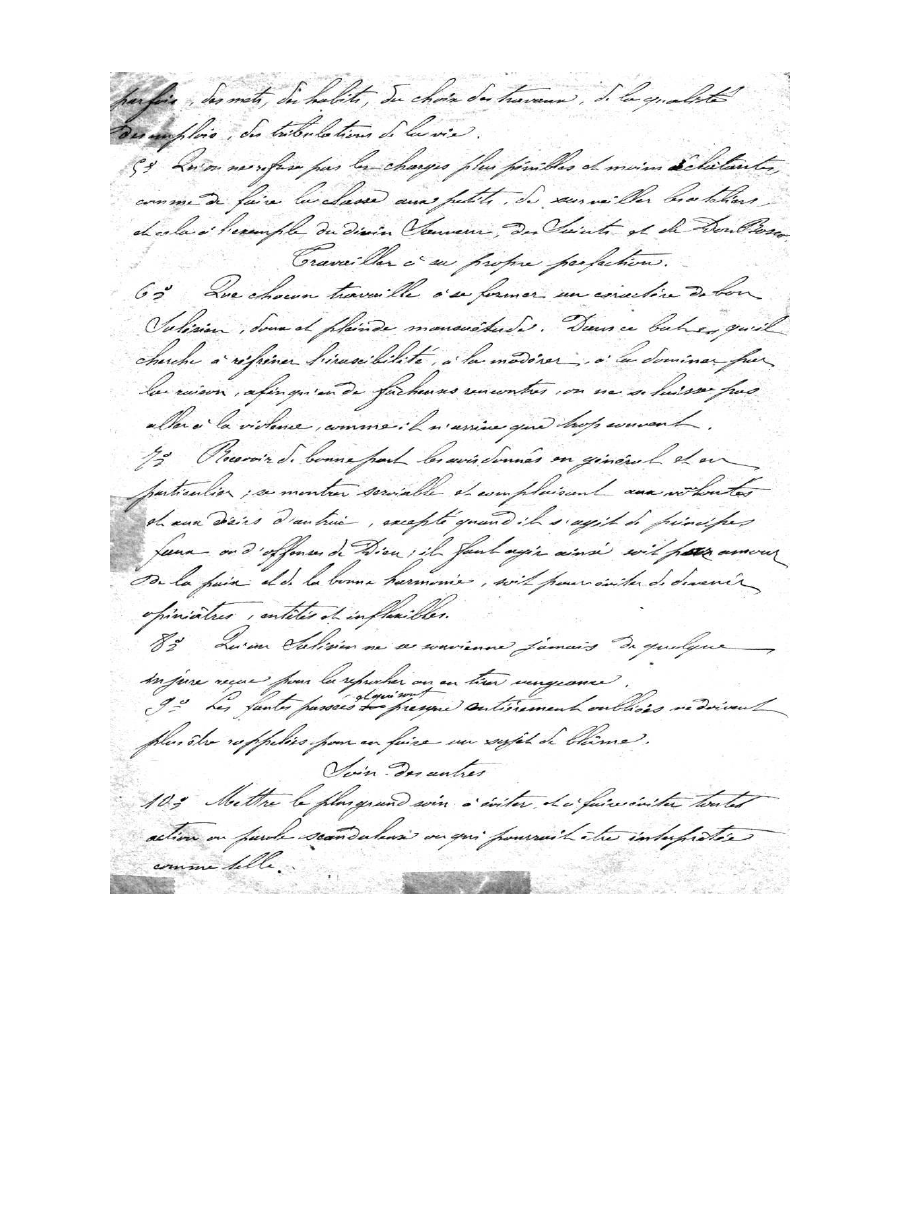 parfois, des mets, des habits, du choix des travaux, de la qualité
des emplois, des tribulations de la vie.
5º Qu'on ne refuse pas les charges plus pénibles et moins éclatantes,
comme de faire la classe aux petits, de surveiller les ateliers,
et cela à l'exemple du divin Sauveur, des Saints et de Don Bosco.
Travailler à sa propre perfection.
6º Que chacun travaille à se former un caractère de bon
Salésien, doux et plein de mansuétude. Dans ce but, qu'il
cherche à réfréner l'irascibilité, à la modérer, à la dominer par
la raison, afin qu'en de fâcheuses rencontres, on ne se laisse pas
aller à la violence, comme il n'arrive que trop souvent.
7º Recevoir de bonne part les avis donnés en général et en
particulier; se montrer serviable et complaisant aux volontés
et aux désirs d'autrui, excepté quand il s'agit de principes
faux ou d'offenses de Dieu; il faut agir ainsi soit par amour
de la paix et de la bonne harmonie, soit pour éviter de devenir
opiniâtres, entêtés et inflexibles.
8º Qu'un Salésien ne se souvienne jamais de quelque
injure reçue pour la reprocher ou en tirer vengeance.
9º Les fautes passées et qui sont presque entièrement oubliées ne doivent
plus être rappelées pour en faire un sujet de blâme.
Soin des autres
10º Mettre le plus grand soin à éviter et à faire éviter toute
action ou parole scandaleuse ou qui pourrait être interprétée
comme telle.